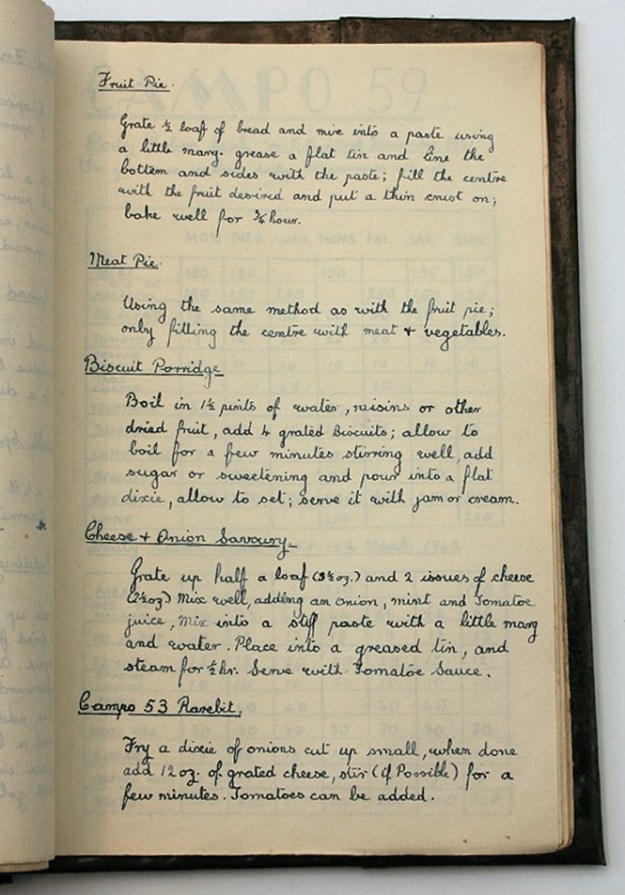 Fruit Pie.
Grate ½ loaf of bread and mix into a paste using
a little marg. grease a flat tin and line the
bottom and sides with the paste; fill the centre
with the fruit desired and put a thin crust on;
bake well for ¾ hour.
Meat Pie.
Using the same method as with the fruit pie;
only filling the centre with meat + vegetables.
Biscuit Porridge
Boil in 1½ pints of water, raisins or other
dried fruit, add 4 grated Biscuits; allow to
boil for a few minutes stirring well, add
sugar or sweetening and pour into a flat
dixie, allow to set; serve it with jam or cream.
Cheese + Onion Savoury.
Grate up half a loaf (3½oz.) and 2 issues of cheese
(2½oz) Mix well, adding an onion, mint and Tomatoe
juice, Mix into a stiff paste with a little marg
and water. Place into a greased tin, and
steam for ½ hr. Serve with Tomatoe Sauce.
Campo 53 Rarebit.
Fry a dixie of onions cut up small, when done
add 12 oz. of grated cheese, stir (if Possible) for a
few minutes. Tomatoes can be added.